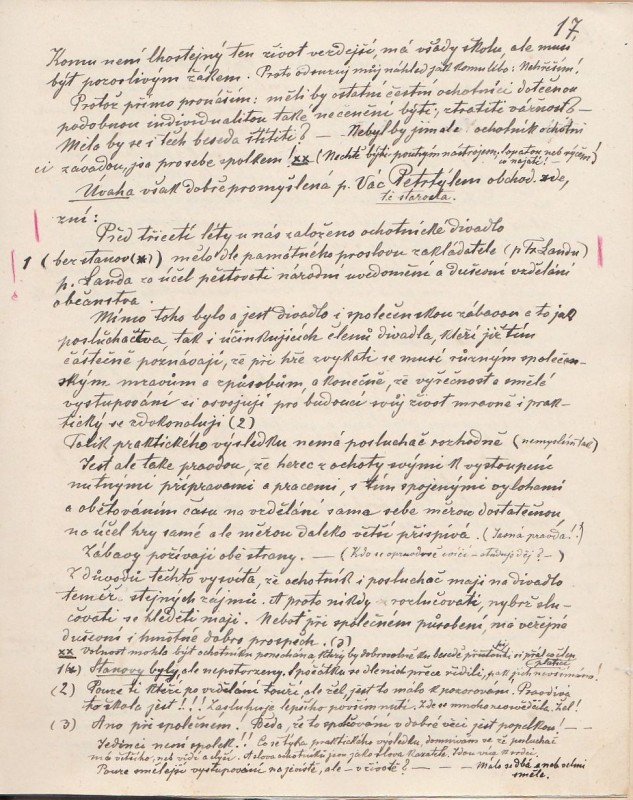 17.
Komu není lhostejný ten život verdejší, má všady školu, ale musí
být pozorlivým žákem. Proto odsuzuj můj náhled jak komu libo: Nehřeším!
Protož přímo pronáším: měli by ostatní čestní ochotníci dotčenou
podobnou individualitou také neceněni býti, ztratiti vážnost? –
Měla by se i těch beseda štítiti? – Nebyl by jim ale ochotník ochotní
ci závadou, jsa pro sebe spolkem! xx (Nechtě býti pouhým nástrojem
co najatí!
Úvaha však dobře promyšlená p. Vác Petrtýlem obchod. zde,
t. č. starosta.
zní:
Před třiceti léty u nás založeno ochotnické divadlo
1 (bez stanov (*)) mělo dle památného proslovu zakladatele (p Fr. Landu)
p. Landa za účel pěstovati národní uvědomění a duševní vzdělání
občanstva.
Mimo toho bylo a jest divadlo i společenskou zábavou a to jak
posluchačstva, tak i účinkujících členů divadla, kteří již tím
částečně poznávají, že při hře zvykati se musí různým společen-
ským mravům a způsobům, a konečně, že výřečnost a smělé
vystupování si osvojují pro budoucí svůj život mravně i prak-
tický se zdokonalují (2)
Tolik praktického výsledku nemá posluchač rozhodně (nemyslím tak)
Jest ale také pravdou, že herec z ochoty svými k vystoupení
nutnými přípravami a pracemi, s tím spojenými výlohami
a obětováním času na vzdělání sama sebe měrou dostatečnou
na účel hry samé ale měrou daleko větší přispívá. (Jasná pravda!!)
Zábavy požívají obě strany. – (Kdo se opravdově cvičí – studuje děj? –)
Z důvodů těchto vysvítá, že ochotník i posluchač mají na divadlo
téměř stejných zájmů. A proto nikdy rozlučovati, nýbrž slu-
čovati se hleděti mají. Neboť při společném působení, má veřejné
duševní i hmotné dobro prospěch. (3)
xx Volnost mohla být ochotníku ponechána a který by dobrovolně ku besedě přistoupil, si přál co člen
platiti,
1*) Stanovy byly, ale nepotvrzeny. Zpočátku se dle nich přece řídili, pak jich nevšímáno!
(2) Pouze ti kteří po vzdělání touží, ale žel, jest to málo k pozorování. Pravdivá
to škola jest!!!! Zasluhuje lepšího povšimnutí. Zde se mnoho neosvědčila. Žel!
(3) Ano při společném! Běda, že to spolčování v dobré věci jest popelkou! –
Jedinci není spolek!! Co se týká praktického výsledku, domnívám se že posluchač
má většího, neb vidí a slyší. A slova ochotníků jsou jako slova kazatele. Jdou více k srdci.
Pouze smělejší vystupování na jevišti, ale – v životě? – – – Málo se dbá aneb velmi
směle.